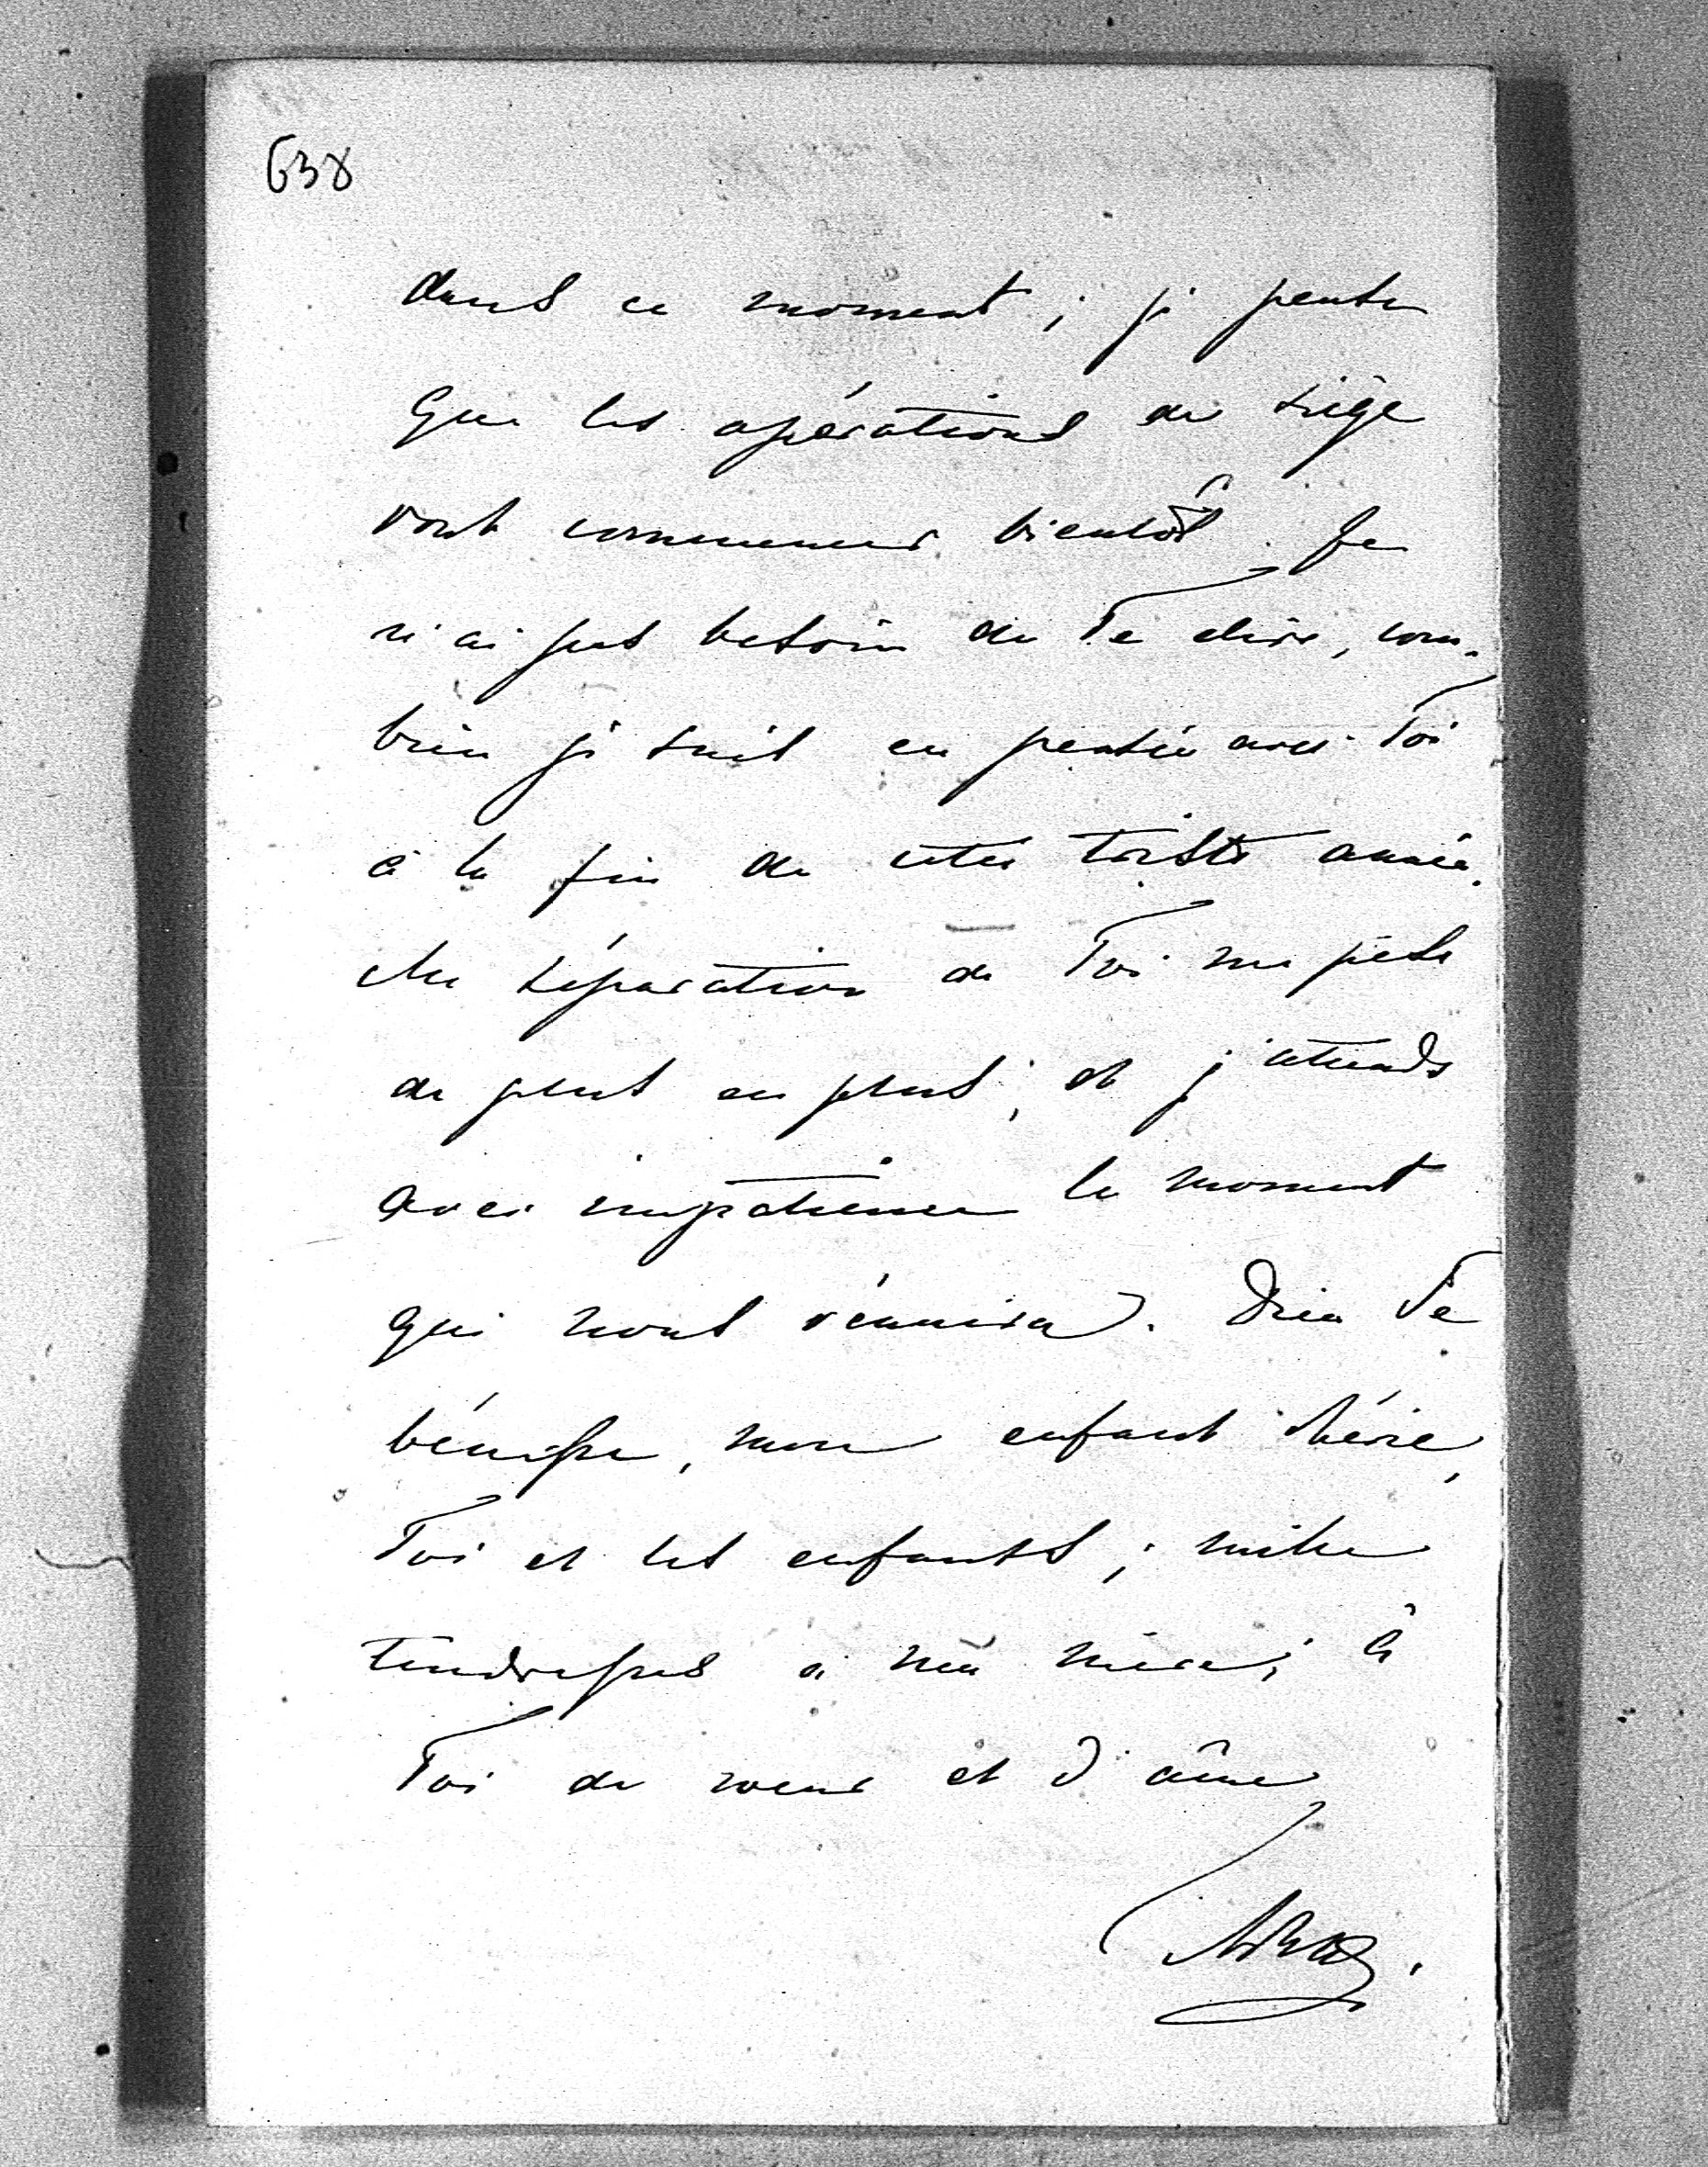 638
dans ce moment ; je pense
que les opérations de siège
vont commencer bientôt. Je
n'ai pas besoin de Te dire, com-
bien je suis en pensée avec Toi
à la fin de cette triste année.
Ma séparation de Toi me pèse
de plus en plus, et j'attends
avec impatience le moment
qui nous réunira. Dieu Te
bénisse, mon enfant chérie,
Toi et les enfants ; mille
tendresses à ma mère ; à
Toi de coeur et d'âme